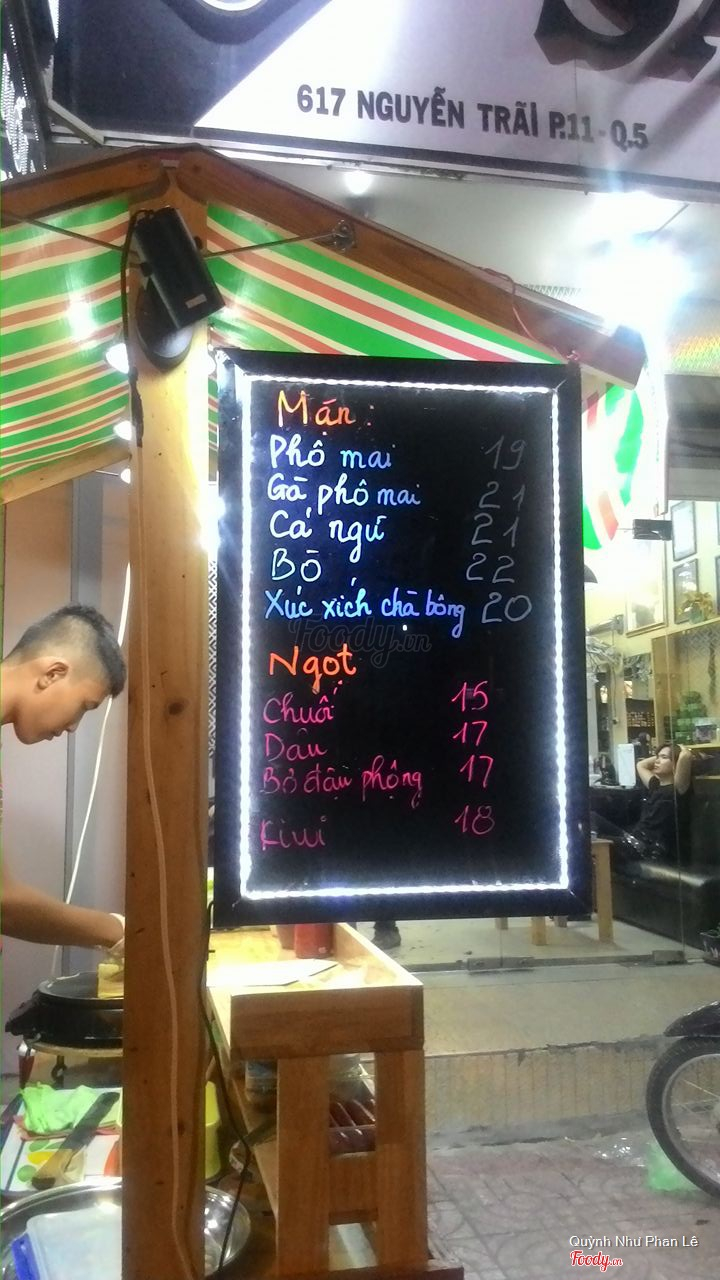 SA
617 NGUYỄN TRÃI P.11 - Q.5
Mặn :
Phô mai 19
Gà phô mai 21
Cá ngừ 21
Bò 22
Xúc xích chà bông 20
Foody.vn
Ngọt
Chuối 15
Dâu 17
Bơ đậu phộng 17
Kiwi 18
Quỳnh Như Phan Lê
Foody.vn